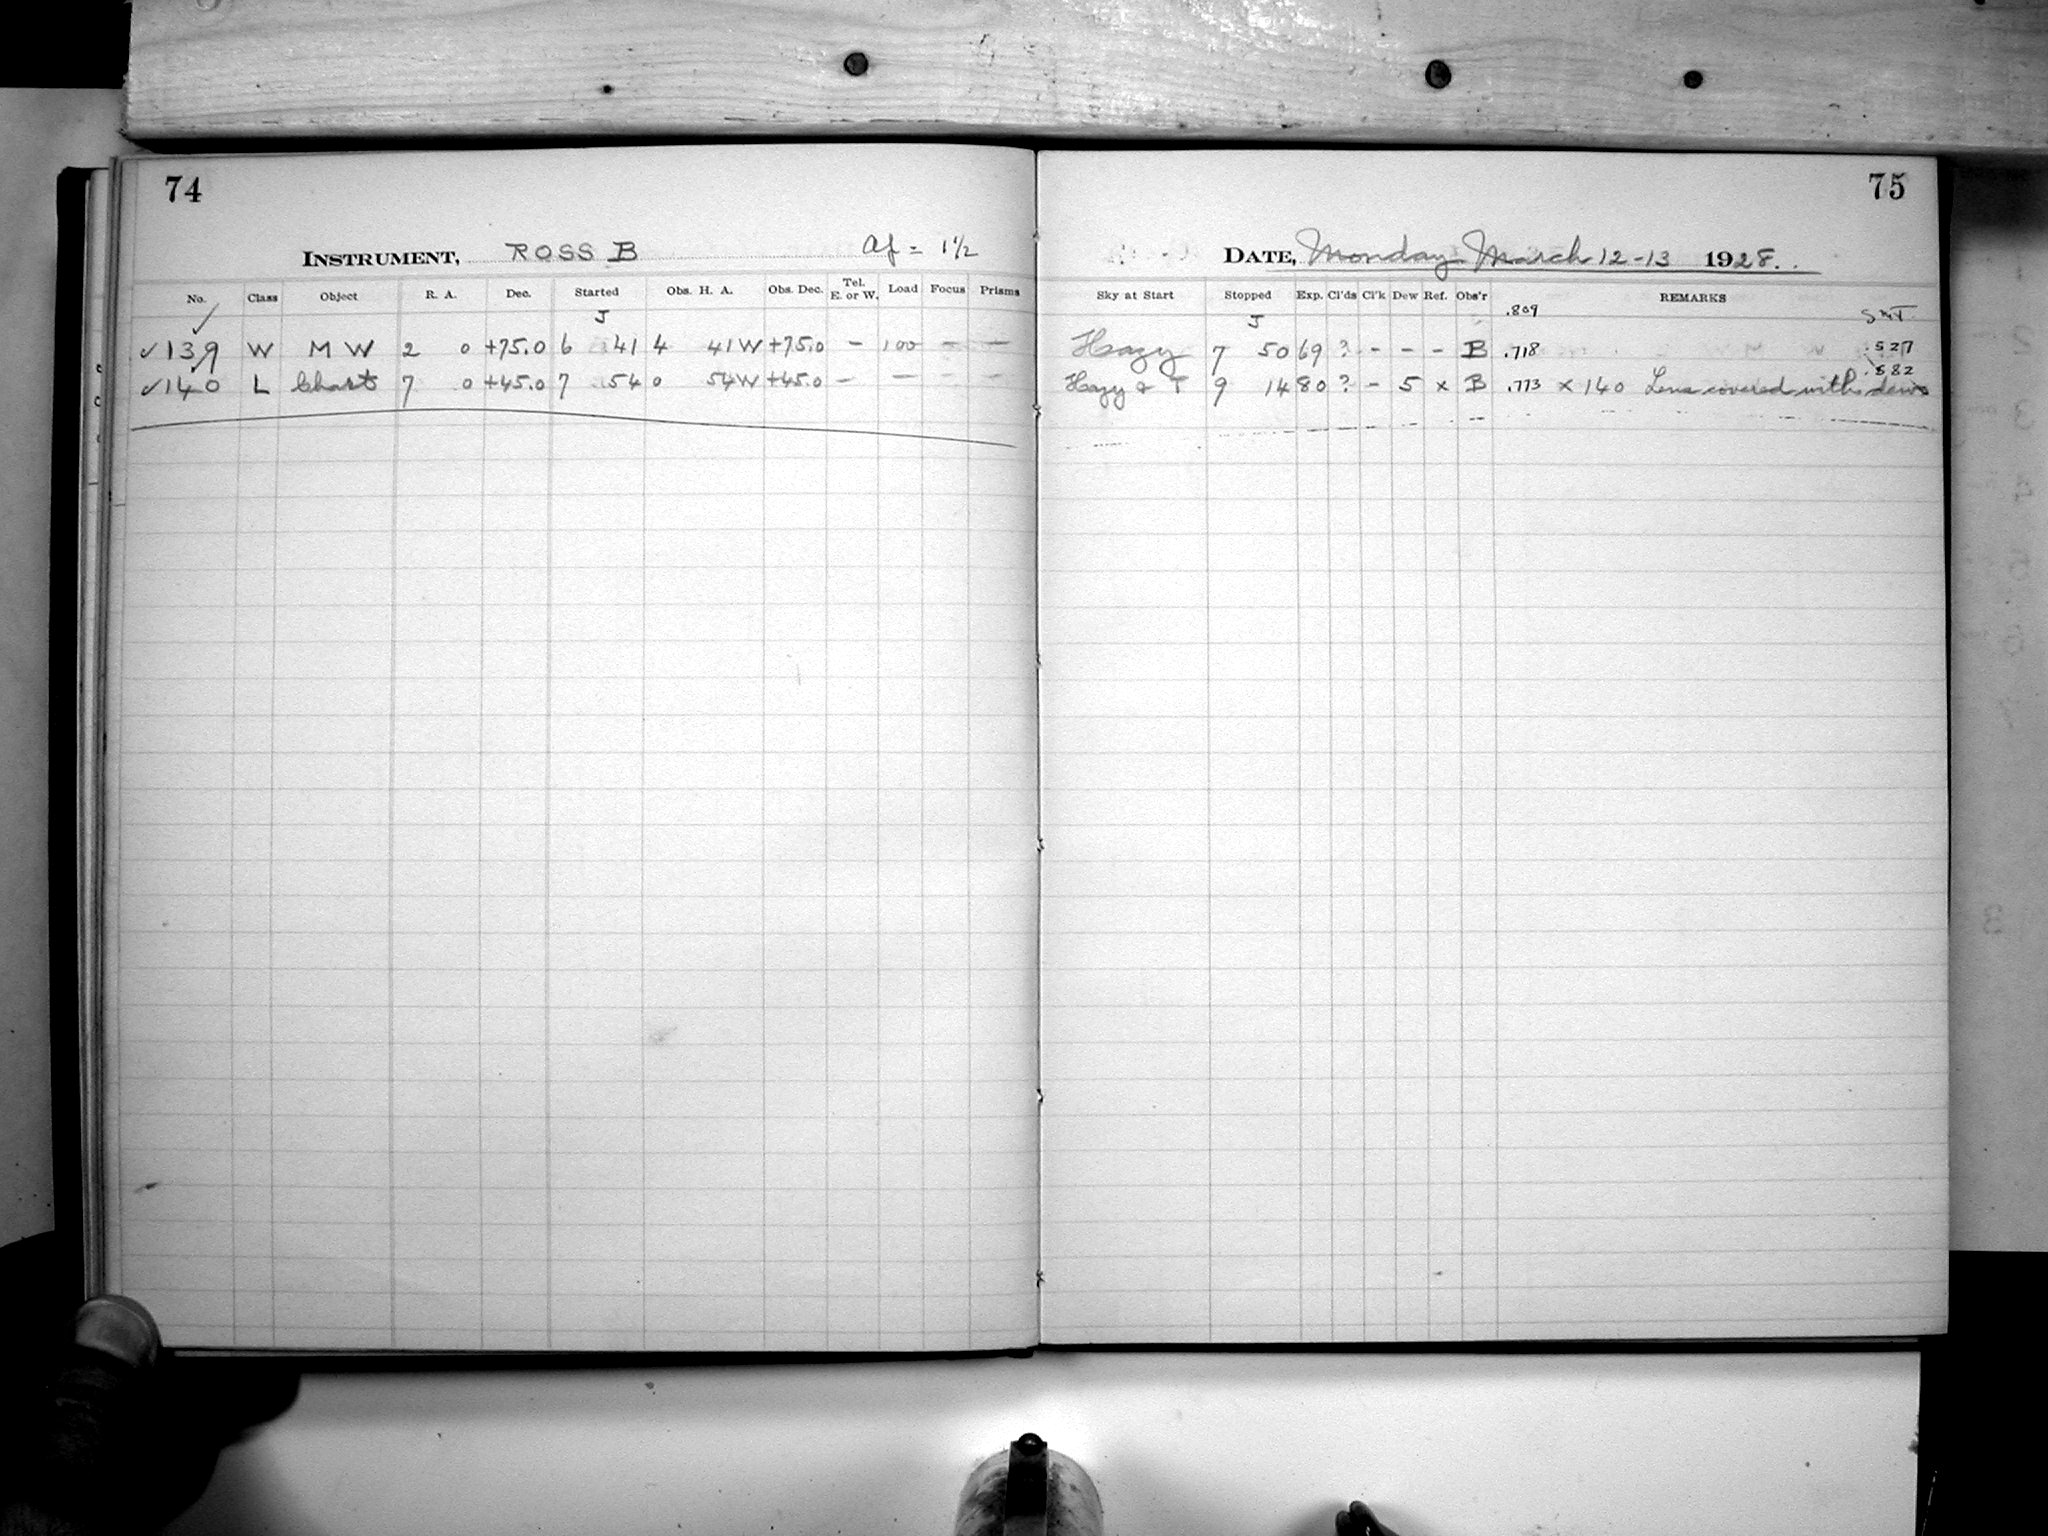 74
INSTRUMENT, ROSS B Af = 1 1/2
No. Class Object R. A. Dec. Started Obs. H. A. Obs. Dec. Tel. E. or W. Load Focus Prisms
J
✓139 W M W 2 0 +75.0 6 41 4 41W +75.0 – 100 – –
✓140 L Chart 7 0 +45.0 7 54 0 54W +45.0 – – – –
75
DATE, Monday March 12-13 1928.
Sky at Start Stopped Exp. Cl'ds Cl'k Dew Ref. Obs'r REMARKS
J .809
Hazy 7 50 69 ? - - - B .718 .527
.582
Hazy & T 9 14 80 ? - 5 x B .773 x 140 Lens covered with dew